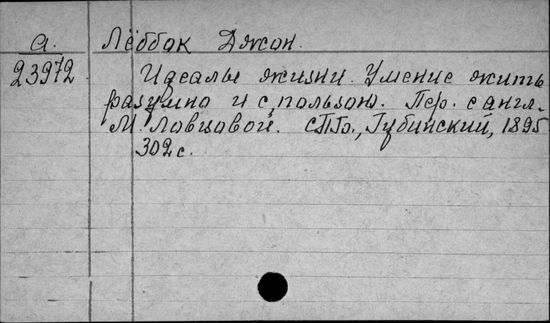 а. Лёббок Джон.
23972. Идеалы жизни. Умение жить
разумно и с пользою. Пер. с англ.
М. Ловцовой. СПб., Губинский, 1895
302 с.